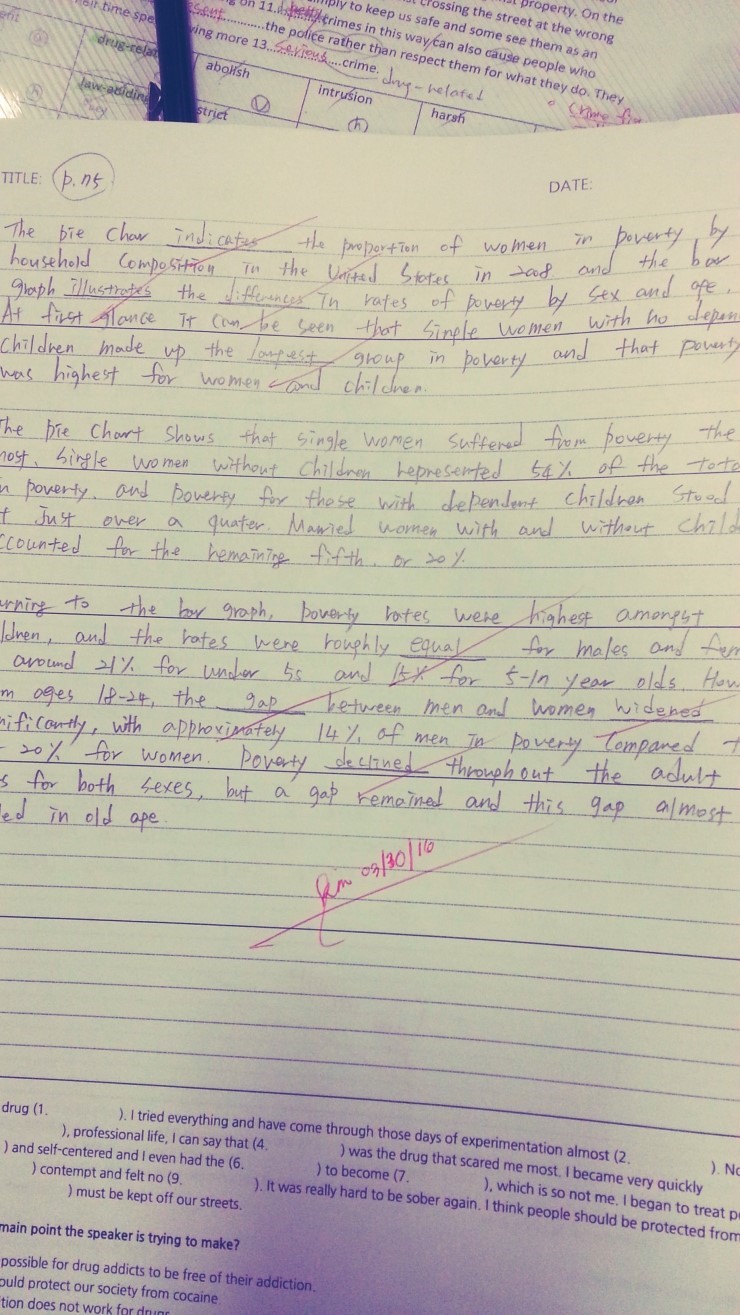 property. On the
mply to keep us safe
crossing the street at the wrong
on 11. petty crimes in this way can also cause people who
and some see them as an
their time spe
sent............the police rather than respect them for what they do. They
ving more 13....serious....crime.
drug-related
drug-relat
abolish
intrusion
harsh
law-abiding
strict
TITLE: p. 175
DATE:
The pie Char indicates the proportion of women in poverty by
household Composition in the United States in 2008 and the bar
graph illustrates the differences in rates of poverty by sex and age.
At first glance it can be seen that Single women with no depen
Children made up the largest group in poverty and that poverty
was highest for women and children.
The pie Chart Shows that single women suffered from poverty the
most. Single women without Children represented 54% of the tota
in poverty. and poverty for those with dependent children stood
t just over a quater. Married women with and without child
ccounted for the remaining fifth. or 20%.
urning to the bar graph, poverty rates were highest amongst
ldren, and the rates were roughly equal for males and fem
around 21% for under 5s and 15% for 5-17 year olds. How
m ages 18-24, the gap between men and women widened
nificantly, with approximately 14% of men in poverty Compared t
20% for women. Poverty declined throughout the adult
s for both sexes, but a gap remained and this gap almost
led in old age.
03/30/16
drug (1. ). I tried everything and have come through those days of experimentation almost (2. ). No
), professional life, I can say that (4. ) was the drug that scared me most. I became very quickly
) and self-centered and I even had the (6. ) to become (7. ), which is so not me. I began to treat p
) contempt and felt no (9. ). It was really hard to be sober again. I think people should be protected from
) must be kept off our streets.
main point the speaker is trying to make?
possible for drug addicts to be free of their addiction.
ould protect our society from cocaine
tion does not work for drug